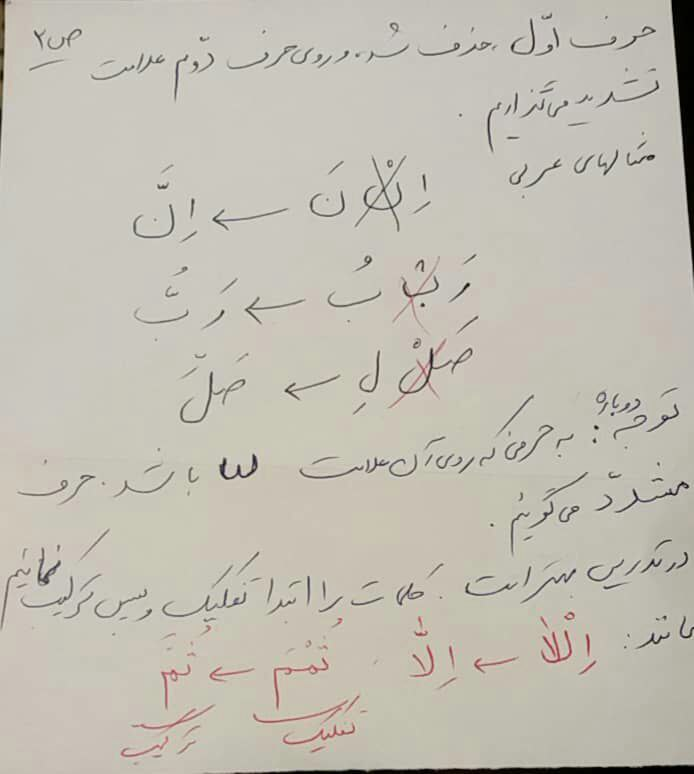 ص ۲
حرف اوّل، حذف شده و روی حرف دوّم علامت
تشدید می‌گذاریم.
مثالهای عربی
اِنْ نَ ← اِنَّ
رَبْ بُ ← رَبُّ
صَلْ لِ ← صَلِّ
توجه دوباره: به حرفی که روی آن علامت ّ باشد. حرف
مشدّد می‌گوئیم.
در تدریس بهتر است. کلمات را ابتدا تفکیک و سپس ترکیب نمائیم
مانند: اِلْلا ← اِلَّا ثُمْمَ ← ثُمَّ
تفکیک ترکیب